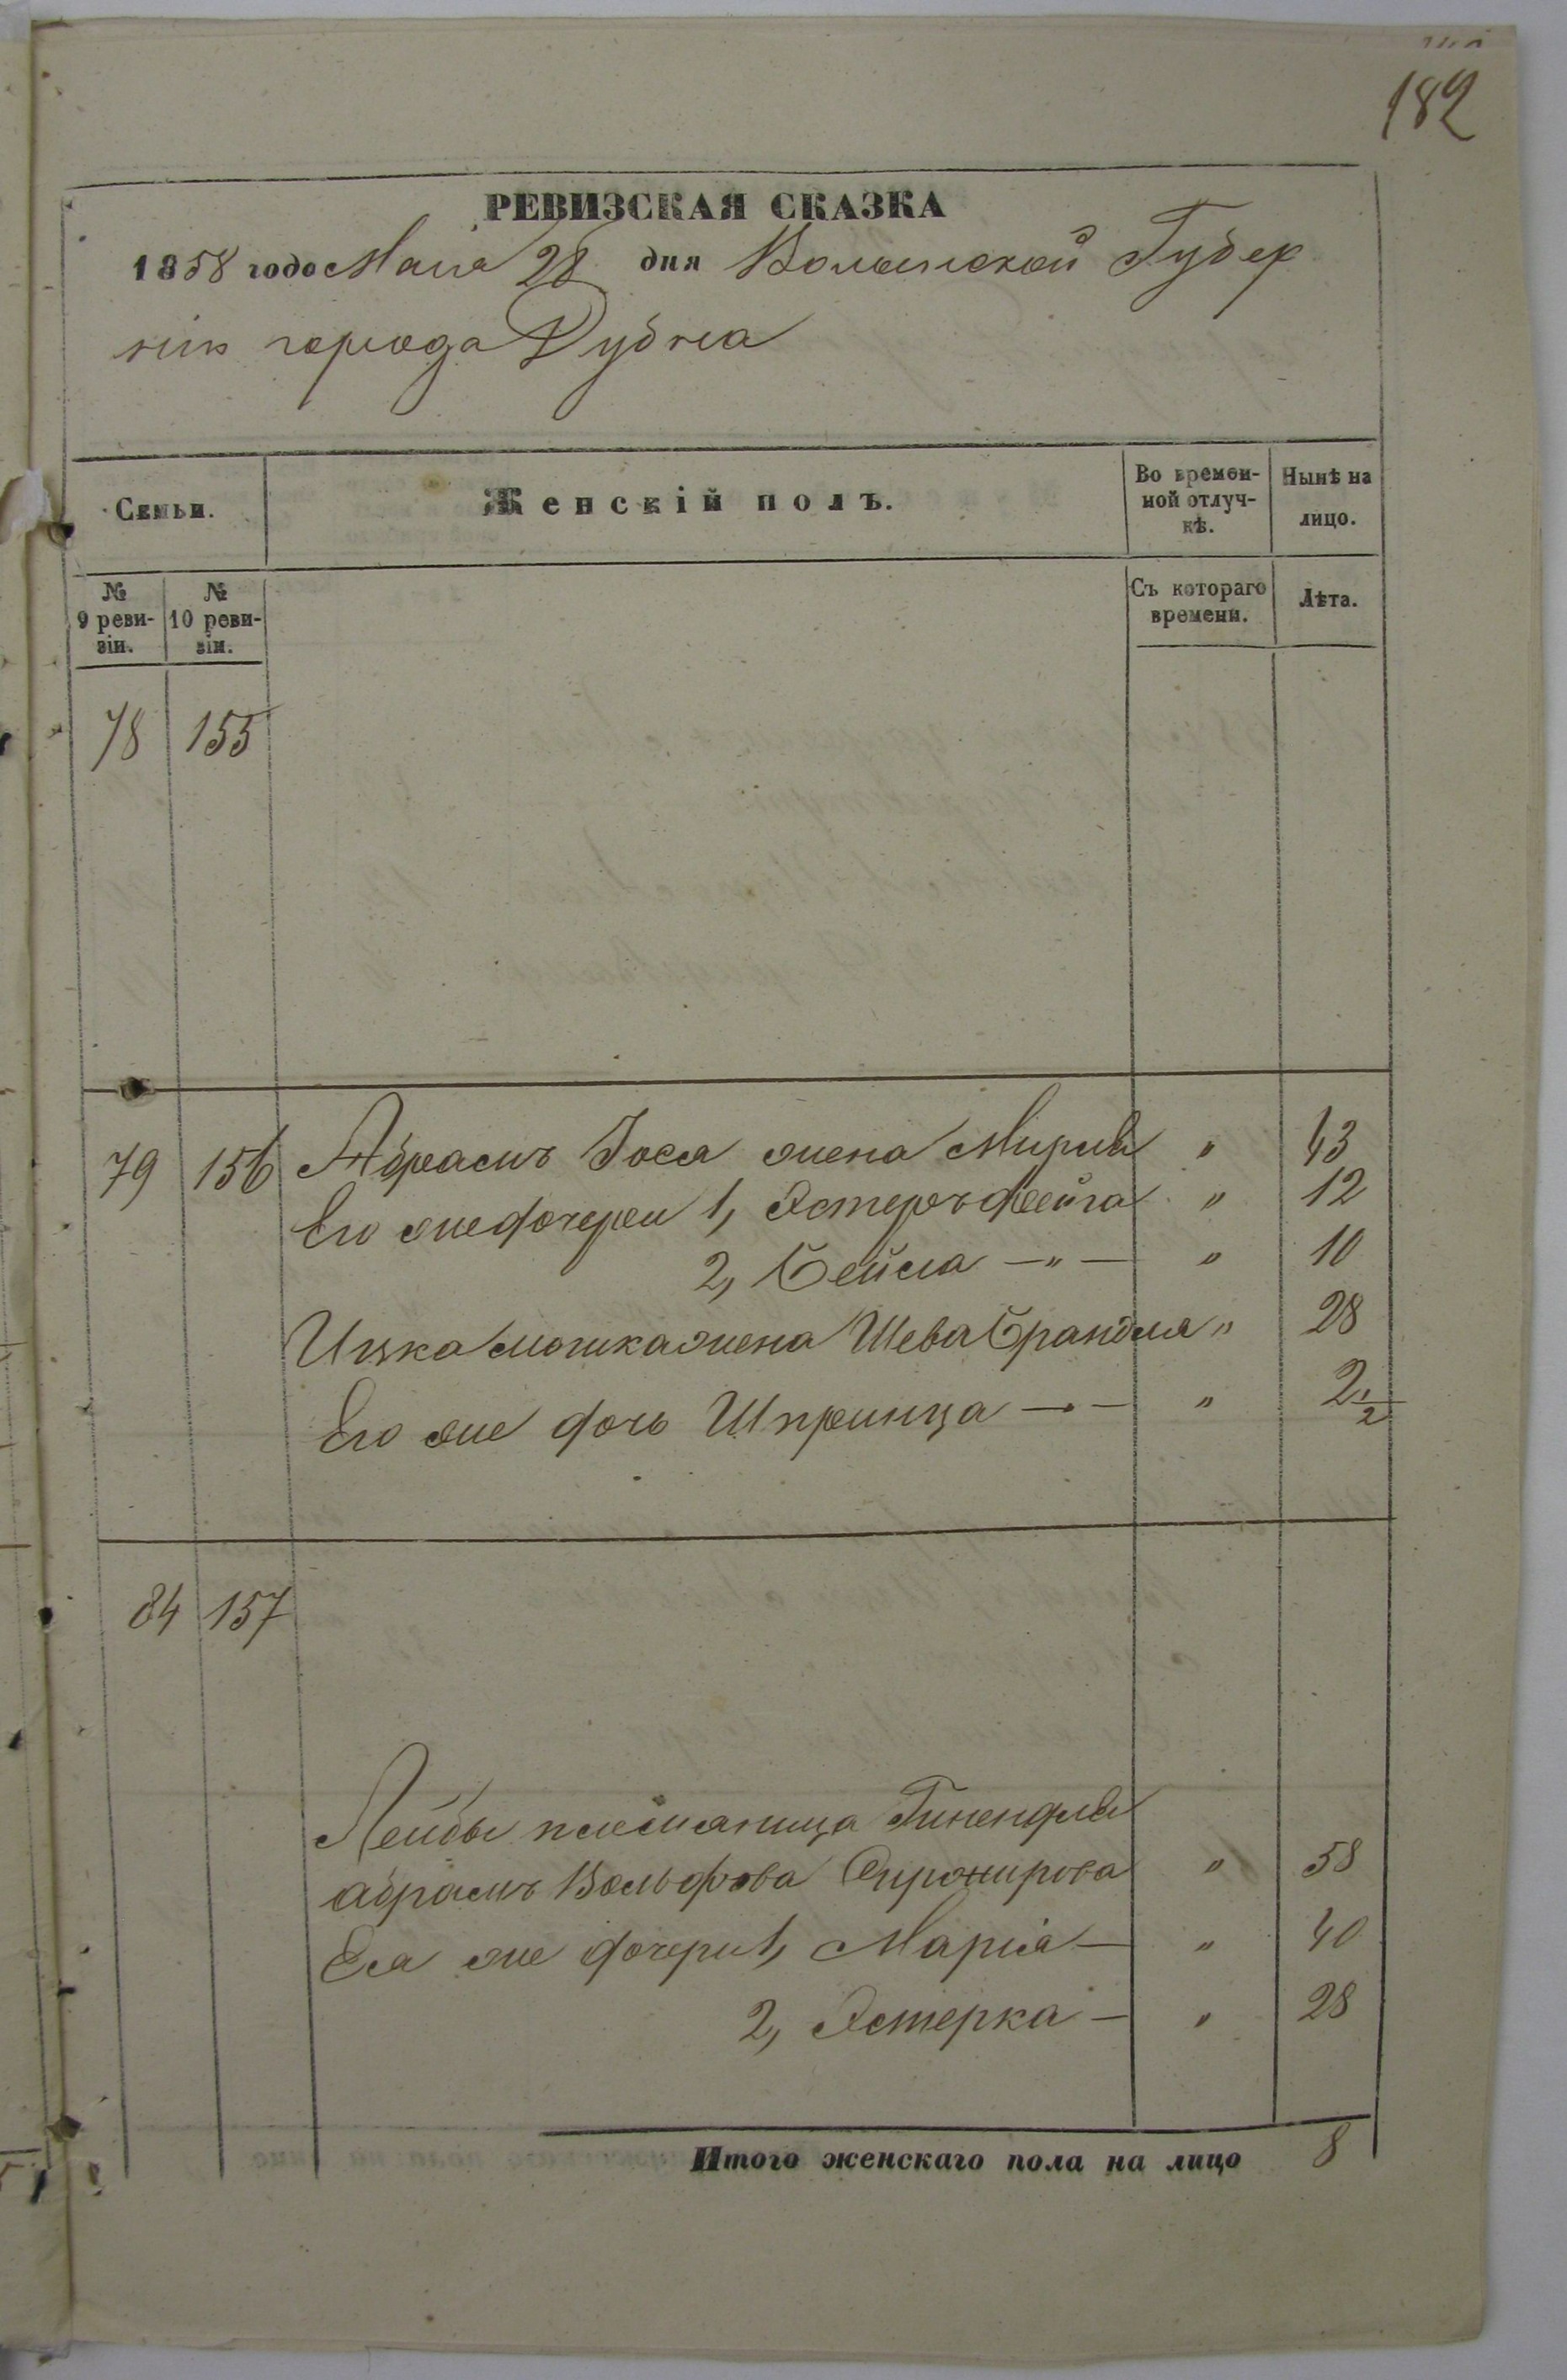 182
РЕВИЗСКАЯ СКАЗКА
1858 года Маія 28 дня Волынской Губер
ніи города Дубна
Семьи.
Женскій полъ.
Во времен-
ной отлуч-
кѣ.
Нынѣ на
лицо.
№
9 реви-
зіи.
№
10 реви-
зіи.
Съ котораго
времени.
Лѣта.
78 155
79 156 Абрамъ Іося жена Мирля " 43
Его же дочери 1, Эстеръ Фейга " 12
2, Бейла —"— " 10
Ицка Мошка жена Шева Брандля " 28
Его же дочь Шпринца — — " 2 1/2
84 157
Лейбы племяница Гинендля
Абрамъ Вольфова " 58
Ея же дочери 1, Марія — " 40
2, Эстерка — " 28
Итого женскаго пола на лицо 8